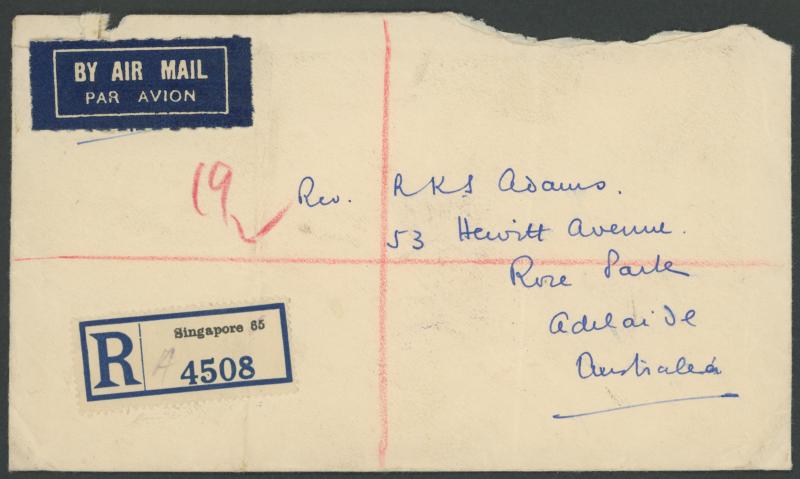 BY AIR MAIL
PAR AVION
19
Rev. R K S Adams.
53 Hewitt Avenue.
Rose Park
Adelaide
Australia
Singapore 65
R A 4508